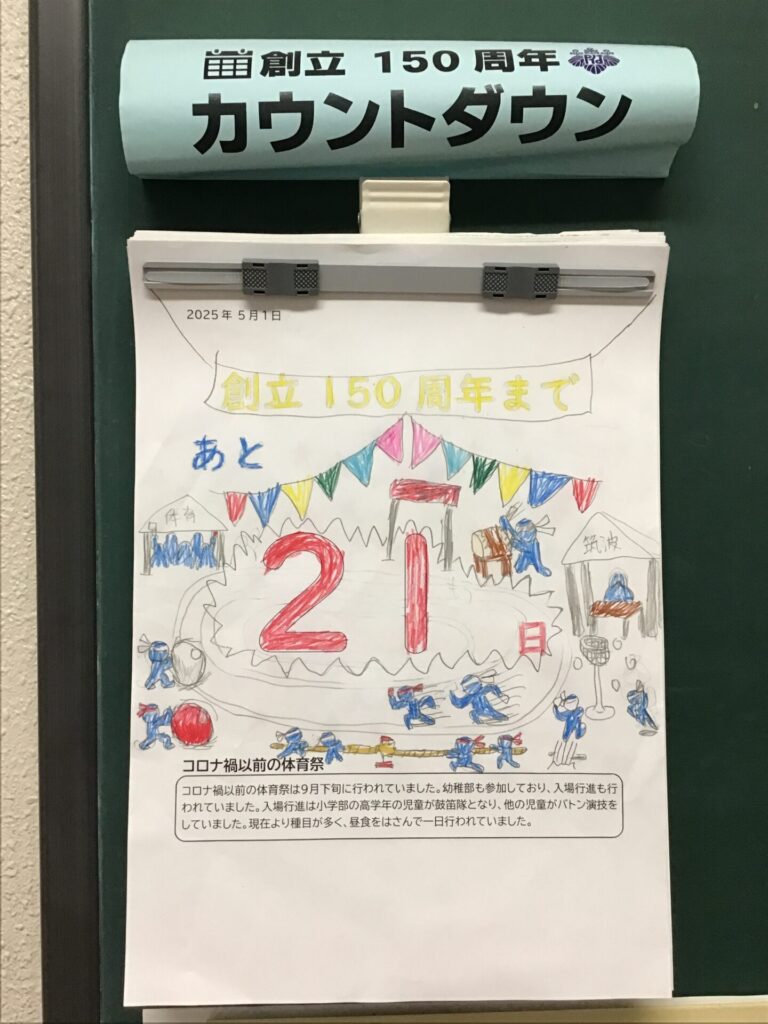 創立 150 周年
カウントダウン
2025年 5月1日
創立 150 周年まで
あと
体育
筑波
21
日
コロナ禍以前の体育祭
コロナ禍以前の体育祭は9月下旬に行われていました。幼稚部も参加しており、入場行進も行
われていました。入場行進は小学部の高学年の児童が鼓笛隊となり、他の児童がバトン演技を
していました。現在より種目が多く、昼食をはさんで一日行われていました。